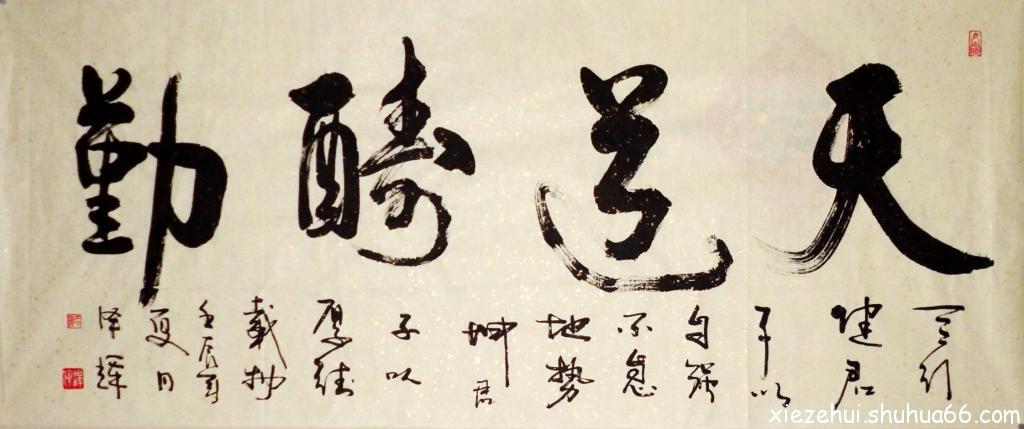 天道醻勤
天行
健君
子以
自強
不息
地勢
坤君
子以
厚德
載物
壬辰
夏日
泽輝
xiezehui.shuhua66.com